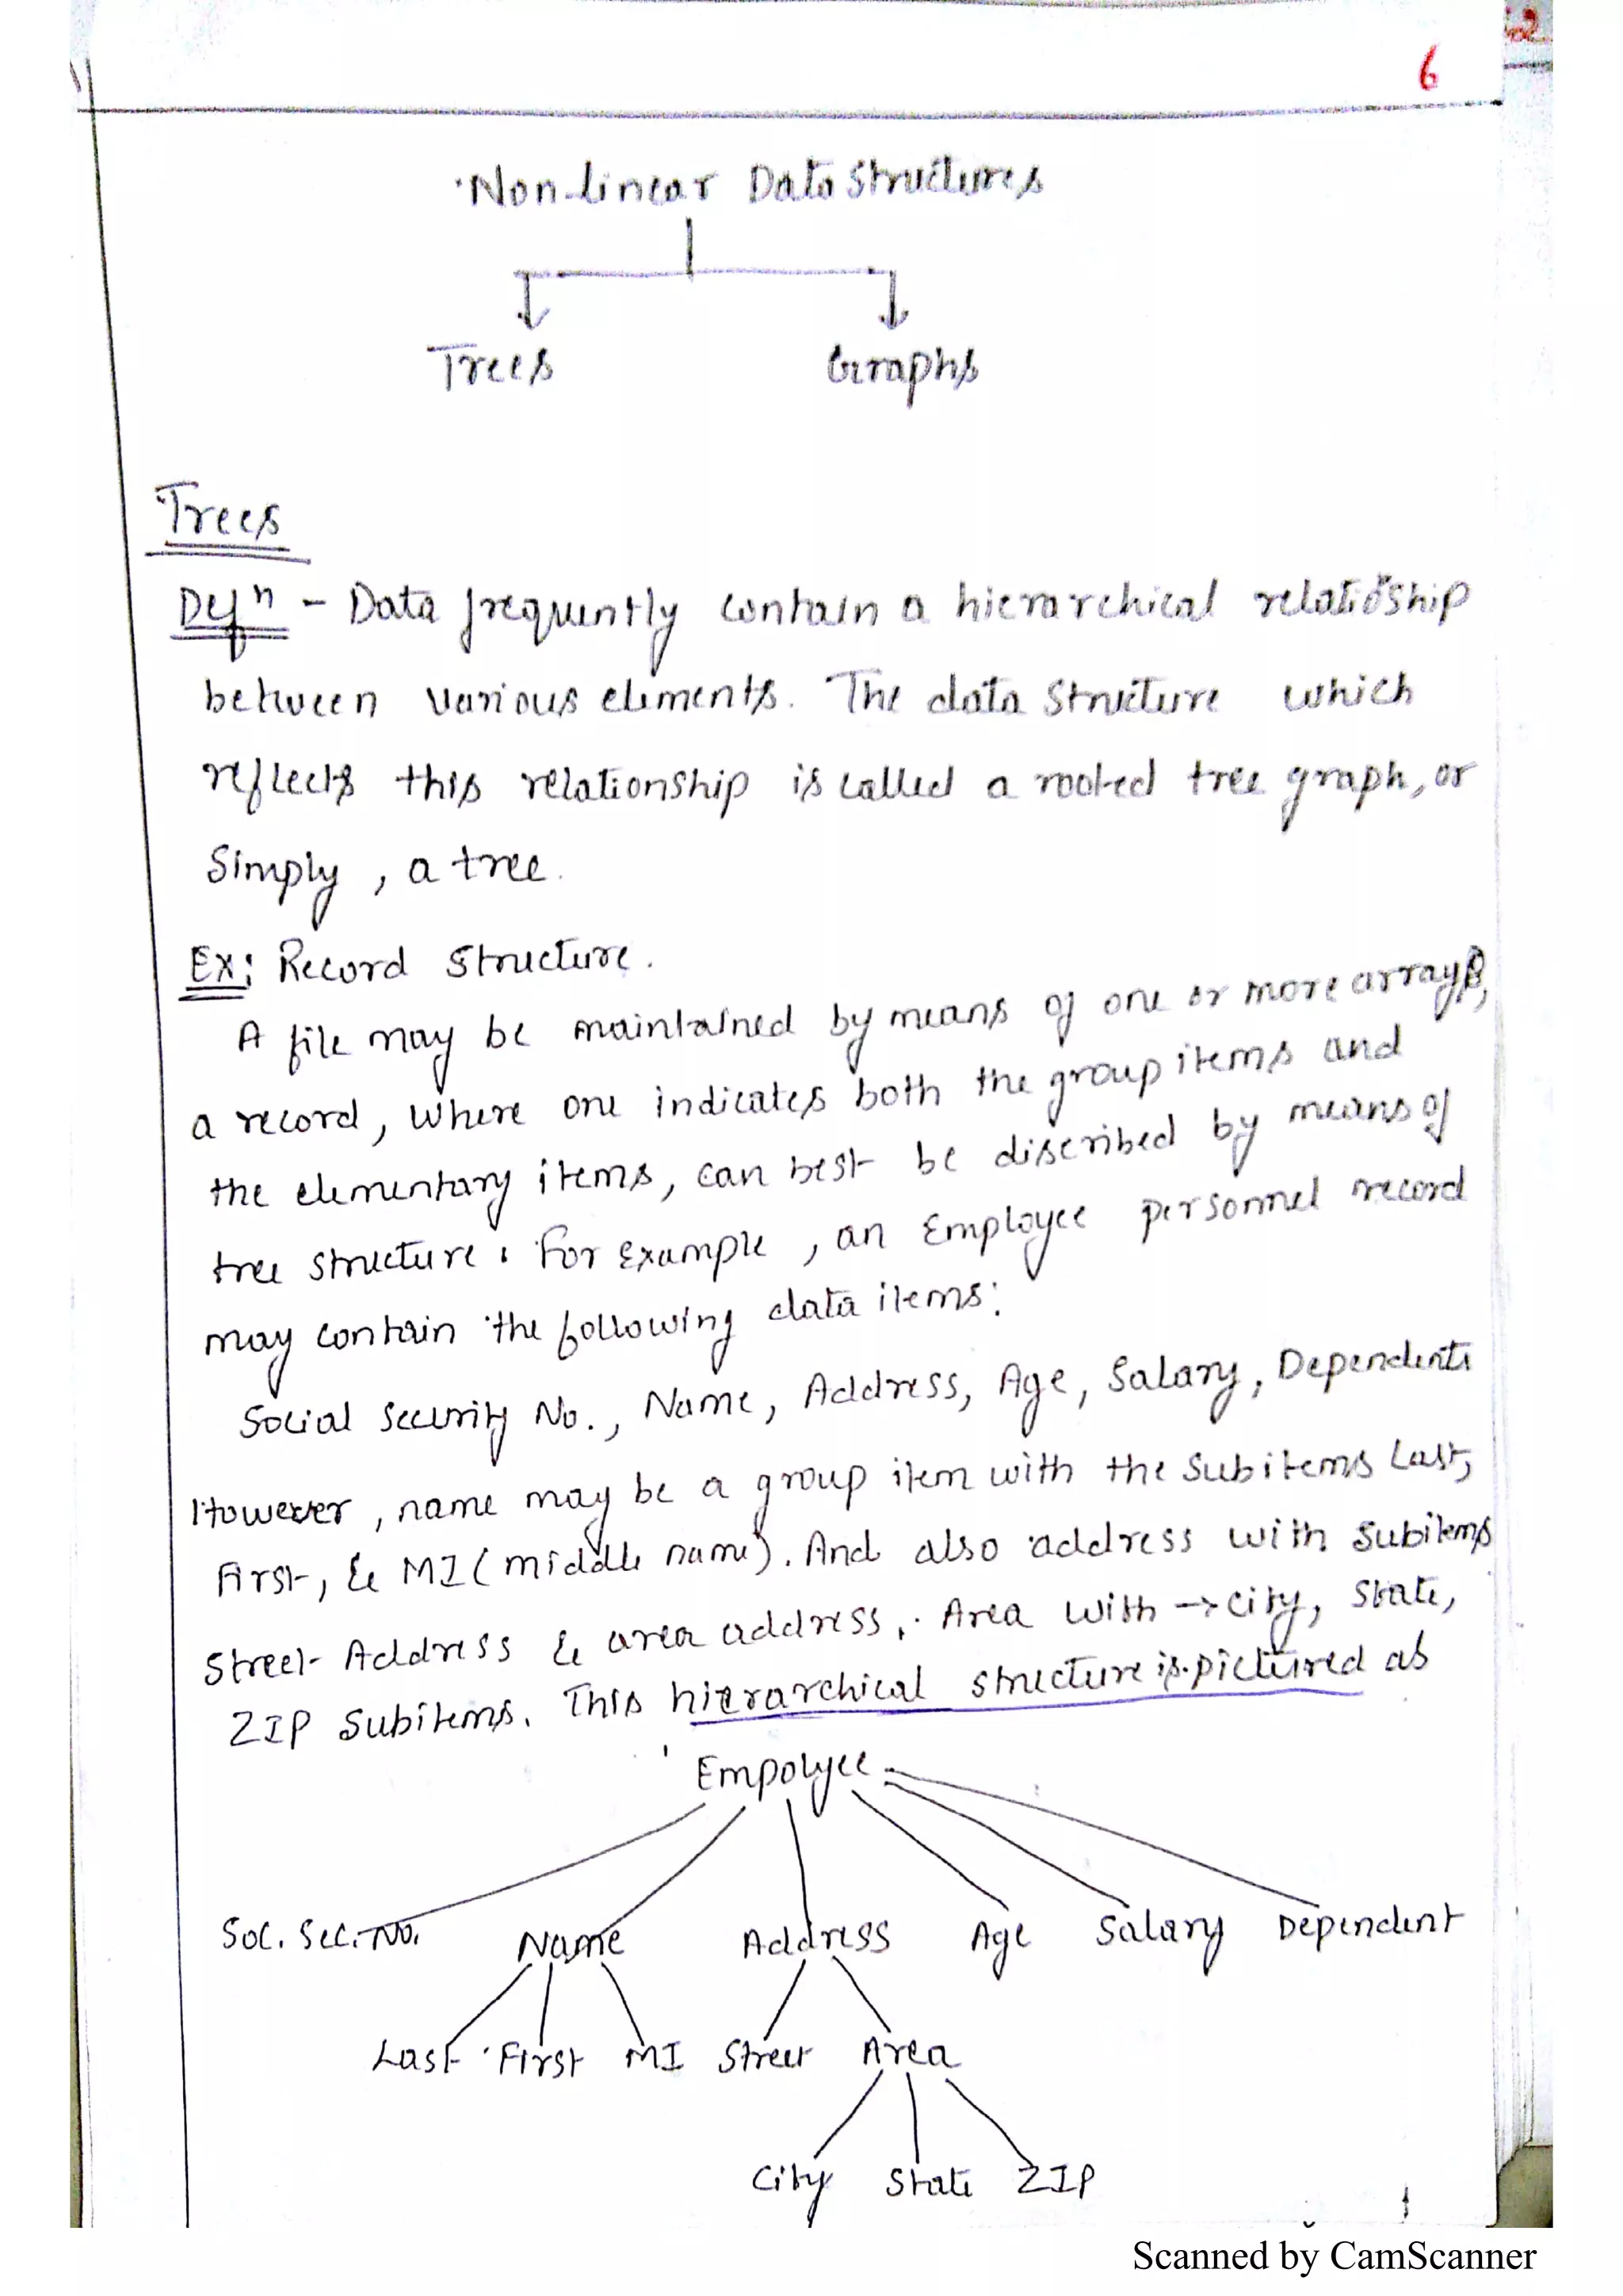 6
Non-linear Data Structures
Trees Graphs
Trees
Defn - Data frequently contain a hierarchical relatioship
between various elements. The data structure which
reflects this relationship is called a rooted tree graph, or
Simply, a tree.
Ex: Record structure.
A file may be maintained by means of one or more arrays,
a record, where one indicates both the group items and
the elementary items, can best be discribed by means of
tree structure. For Example, an Employee personnel record
may contain the following data items:
Social Security No., Name, Address, Age, Salary, Dependents
However, name may be a group item with the Subitems Last,
First, & MI (middle name). And also address with subitems
Street Address & area address,. Area with → city, state,
ZIP Subitems. This hierarchical structure is pictured as
Empolyee
Soc. Sec. No. Name Address Age Salary Dependent
Last First MI Street Area
City State ZIP
Scanned by CamScanner